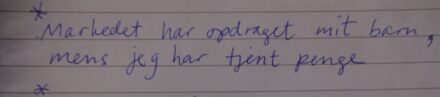 *
Markedet har opdraget mit barn,
mens jeg har tjent penge
*